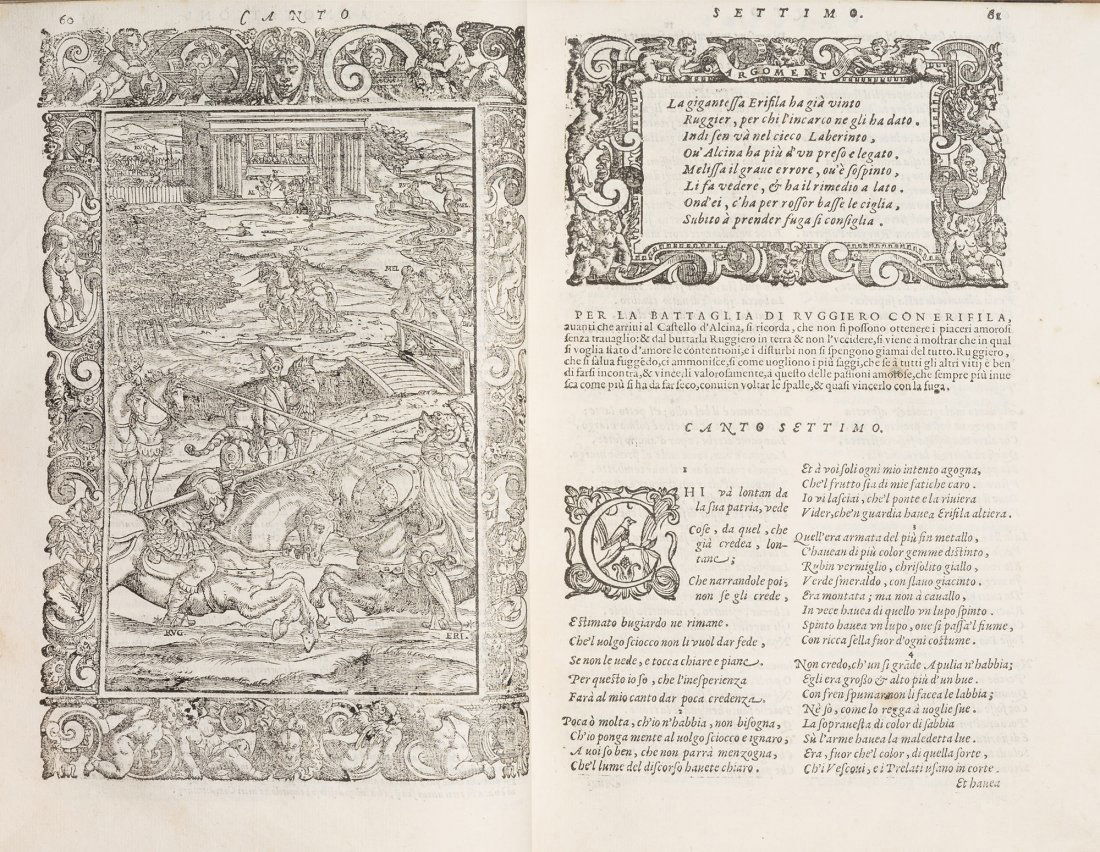 60
CANTO
AL
RV
MEL
MEL
RVG.
ERI.
SETTIMO.
61
ARGOMENTO
La gigantessa Erifila ha già vinto
Ruggier, per chi l'incarco ne gli ha dato.
Indi sen và nel cieco Laberinto,
Ou'Alcina ha più d'vn preso e legato.
Melissa il graue errore, ou'è sospinto,
Li fa vedere, & ha il rimedio a lato.
Ond'ei, c'ha per rossor basse le ciglia,
Subito à prender fuga si consiglia.
PER LA BATTAGLIA DI RVGGIERO CON ERIFILA,
auanti che arriui al Castello d'Alcina, si ricorda, che non si possono ottenere i piaceri amorosi
senza trauaglio: & dal buttarla Ruggiero in terra & non l'vccidere, si viene à mostrar che in qual
si voglia stato d'amore le contentioni, e i disturbi non si spengono giamai del tutto. Ruggiero,
che si salua fuggēdo, ci ammonisce, si come uogliono i più saggi, che se à tutti gli altri vitij e ben
di farsi incontra, & vincerli valorosamente, à questo delle passioni amorose, che sempre più inue
sca come più si ha da far seco, conuien voltar le spalle, & quasi vincerlo con la fuga.
CANTO SETTIMO.
1
CHI và lontan da
la sua patria, vede
Cose, da quel, che
già credea, lon-
tane;
Che narrandole poi,
non se gli crede,
Estimato bugiardo ne rimane.
Che'l uolgo sciocco non li vuol dar fede,
Se non le uede, e tocca chiare e piane.
Per questo io so, che l'inesperienza
Farà al mio canto dar poca credenza.
2
Poca ò molta, ch'io n'habbia, non bisogna,
Ch'io ponga mente al uolgo sciocco e ignaro,
A uoi so ben, che non parrà menzogna,
Che'l lume del discorso hauete chiaro.
Et à voi soli ogni mio intento agogna,
Che'l frutto sia di mie fatiche caro.
Io vi lasciai, che'l ponte e la riuiera
Vider, che'n guardia hauea Erifila altiera.
3
Quell'era armata del più fin metallo,
C'hauean di più color gemme distinto,
Rubin vermiglio, chrisolito giallo,
Verde smeraldo, con flauo giacinto.
Era montata; ma non à cauallo,
In vece hauea di quello vn lupo spinto.
Spinto hauea vn lupo, oue si passa'l fiume,
Con ricca sella fuor d'ogni costume.
4
Non credo, ch'un si grāde Apulia n'habbia;
Egli era grosso & alto più d'un bue.
Con fren spumar non li facea le labbia;
Nè so, come lo regga à uoglie sue.
La soprauesta di color di sabbia
Sù l'arme hauea la maledetta lue.
Era, fuor che'l color, di quella sorte,
Ch'i Vescoui, e i Prelati vsano in corte.
Et hauea